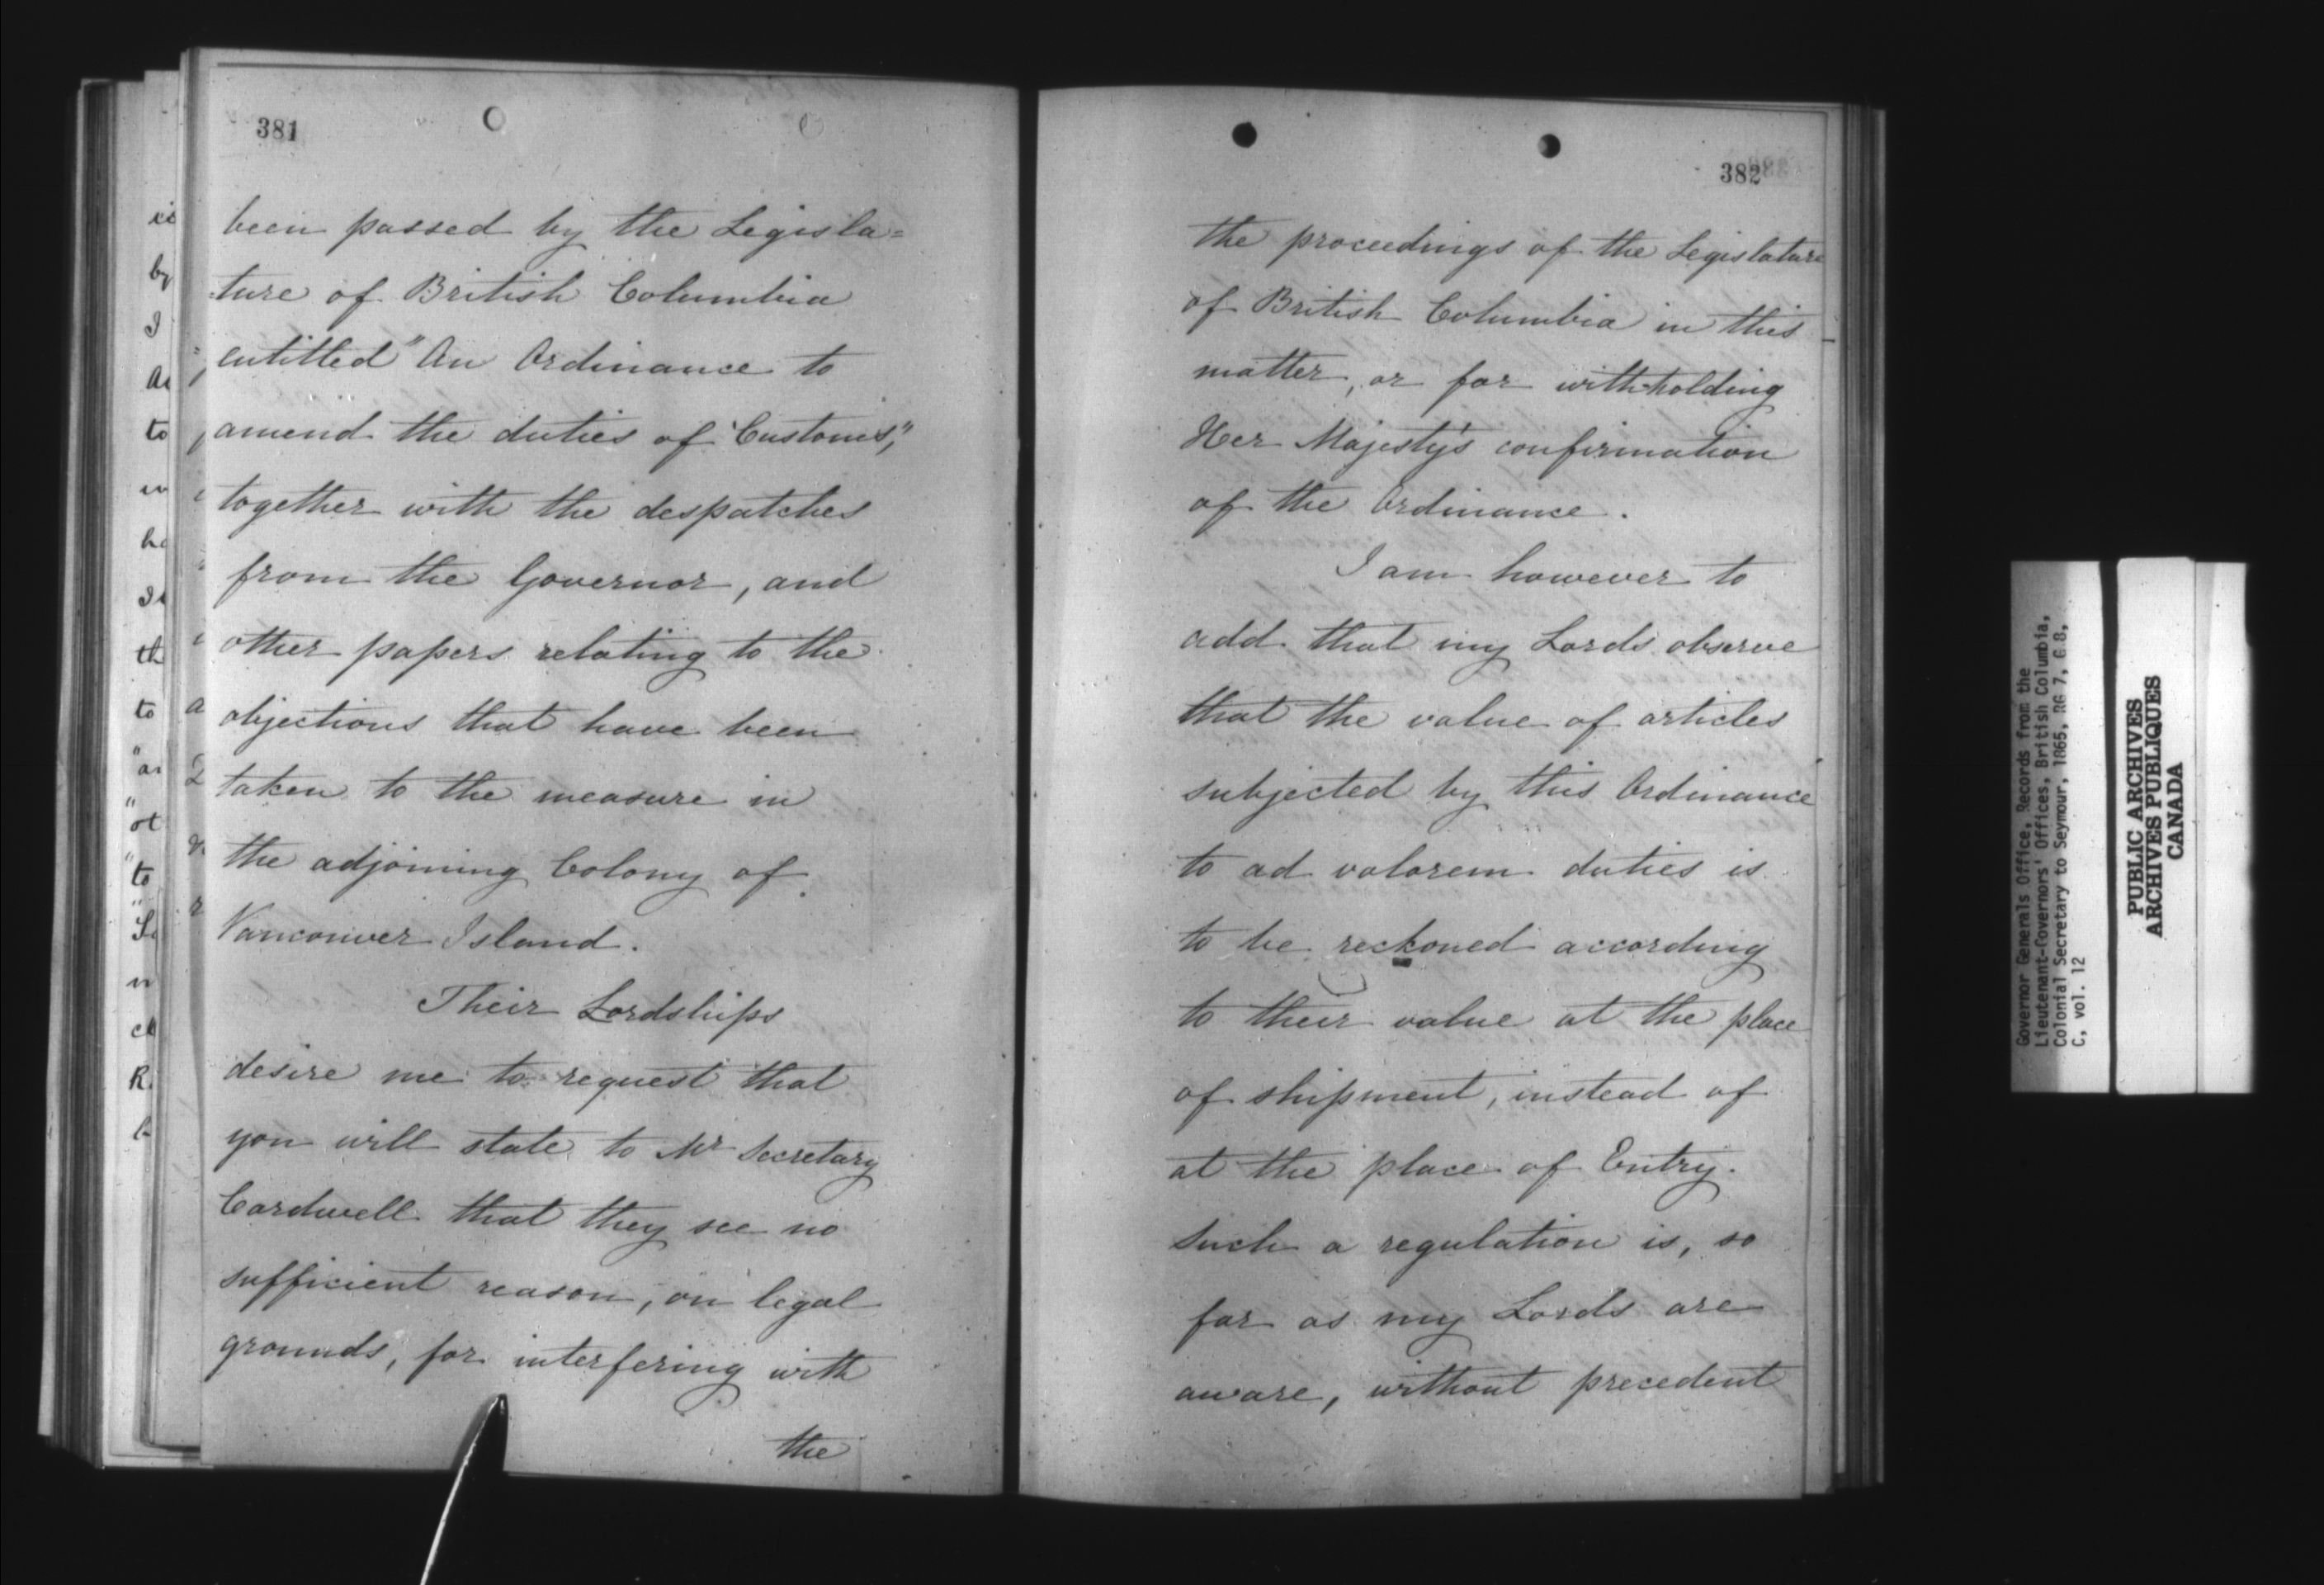 381
been passed by the Legisla=
=ture of British Columbia
entitled "An Ordinance to
amend the duties of Customs,"
together with the despatches
from the Governor, and
other papers relating to the
objections that have been
taken to the measure in
the adjoining Colony of
Vancouver Island.
Their Lordships
desire me to request that
you will state to Mr Secretary
Cardwell that they see no
sufficient reason, on legal
grounds, for interfering with
the
382
the proceedings of the Legislature
of British Columbia in this
matter, or for withholding
Her Majesty's confirmation
of the Ordinance.
I am however to
add that my Lords observe
that the value of articles
subjected by this Ordinance
to ad valorem duties is
to be reckoned according
to their value at the place
of shipment, instead of
at the place of Entry.
Such a regulation is, so
far as my Lords are
aware, without precedent
Governor Generals Office, Records from the
Lieutenant-Governors' Offices, British Columbia,
Colonial Secretary to Seymour, 1865, RG 7, G 8,
C, vol. 12
PUBLIC ARCHIVES
ARCHIVES PUBLIQUES
CANADA